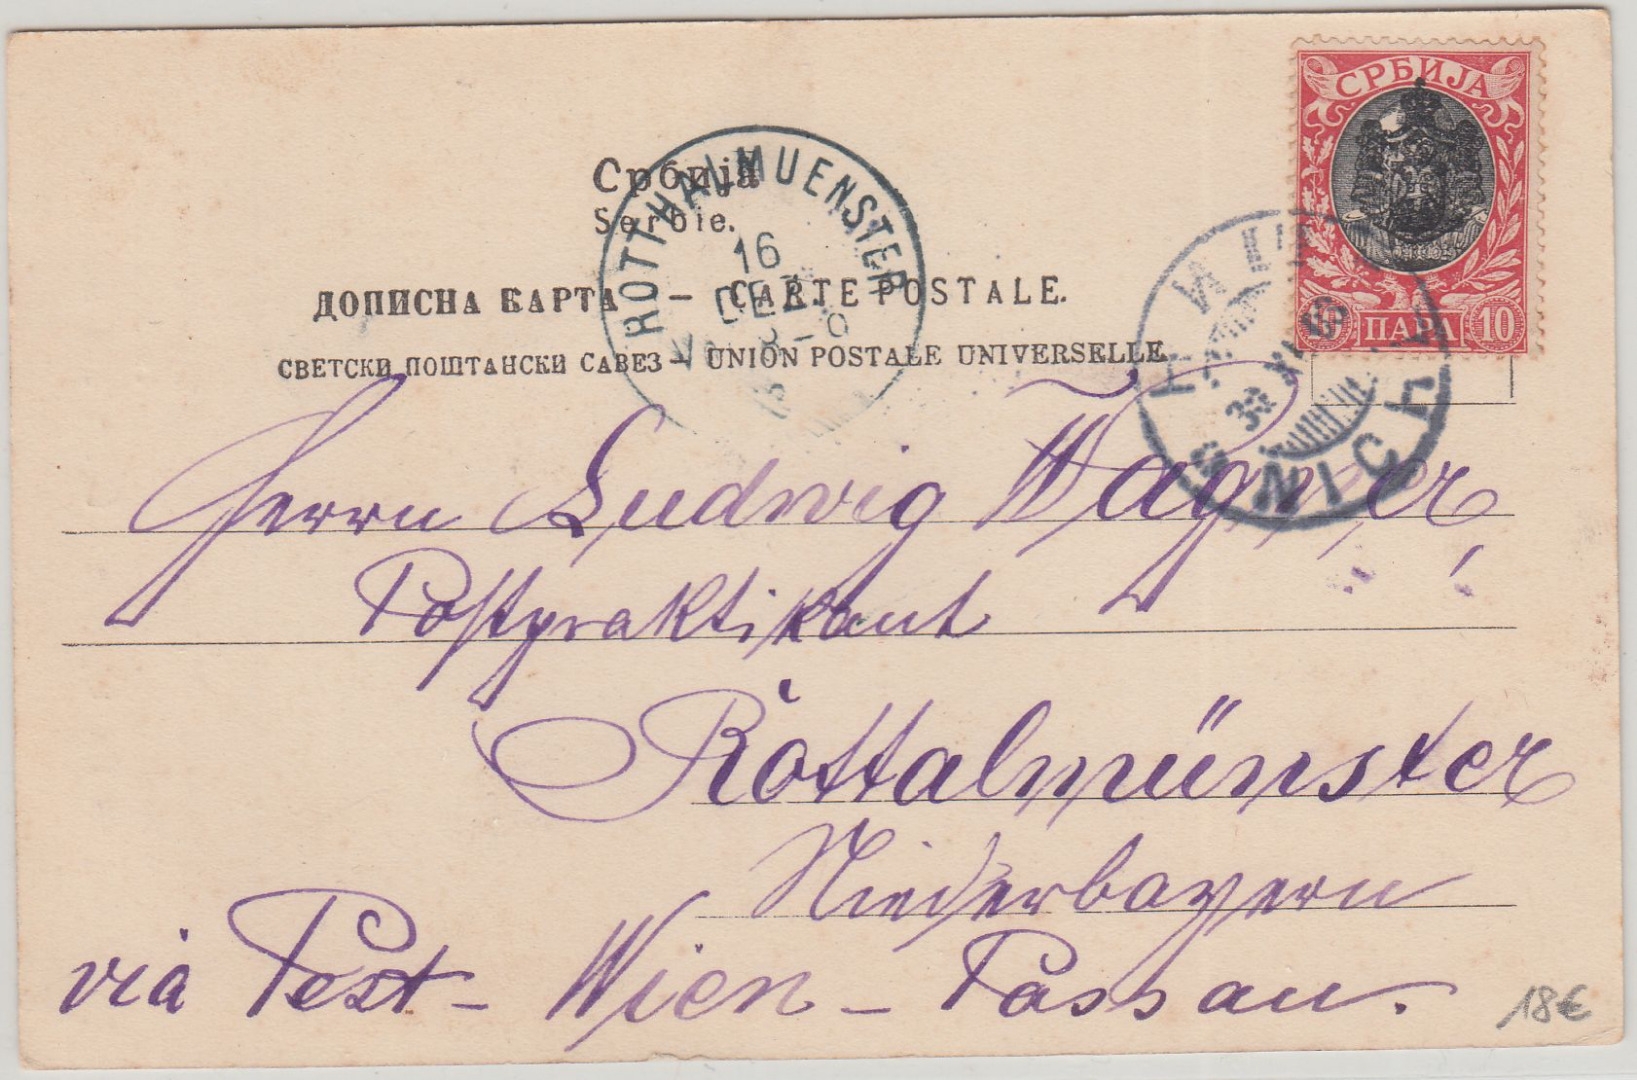 СРБИЈА
10 ПАРА 10
Србија
Serbie.
ДОПИСНА КАРТА — CARTE POSTALE.
СВЕТСКИ ПОШТАНСКИ САВЕЗ — UNION POSTALE UNIVERSELLE
ROTTHALMUENSTER
16
DEZ
НИШ
XI
NICH
Herrn Ludwig Wagner
Postpraktikant !
Rottalmünster
Niederbayern
via Pest - Wien - Passau.
18€